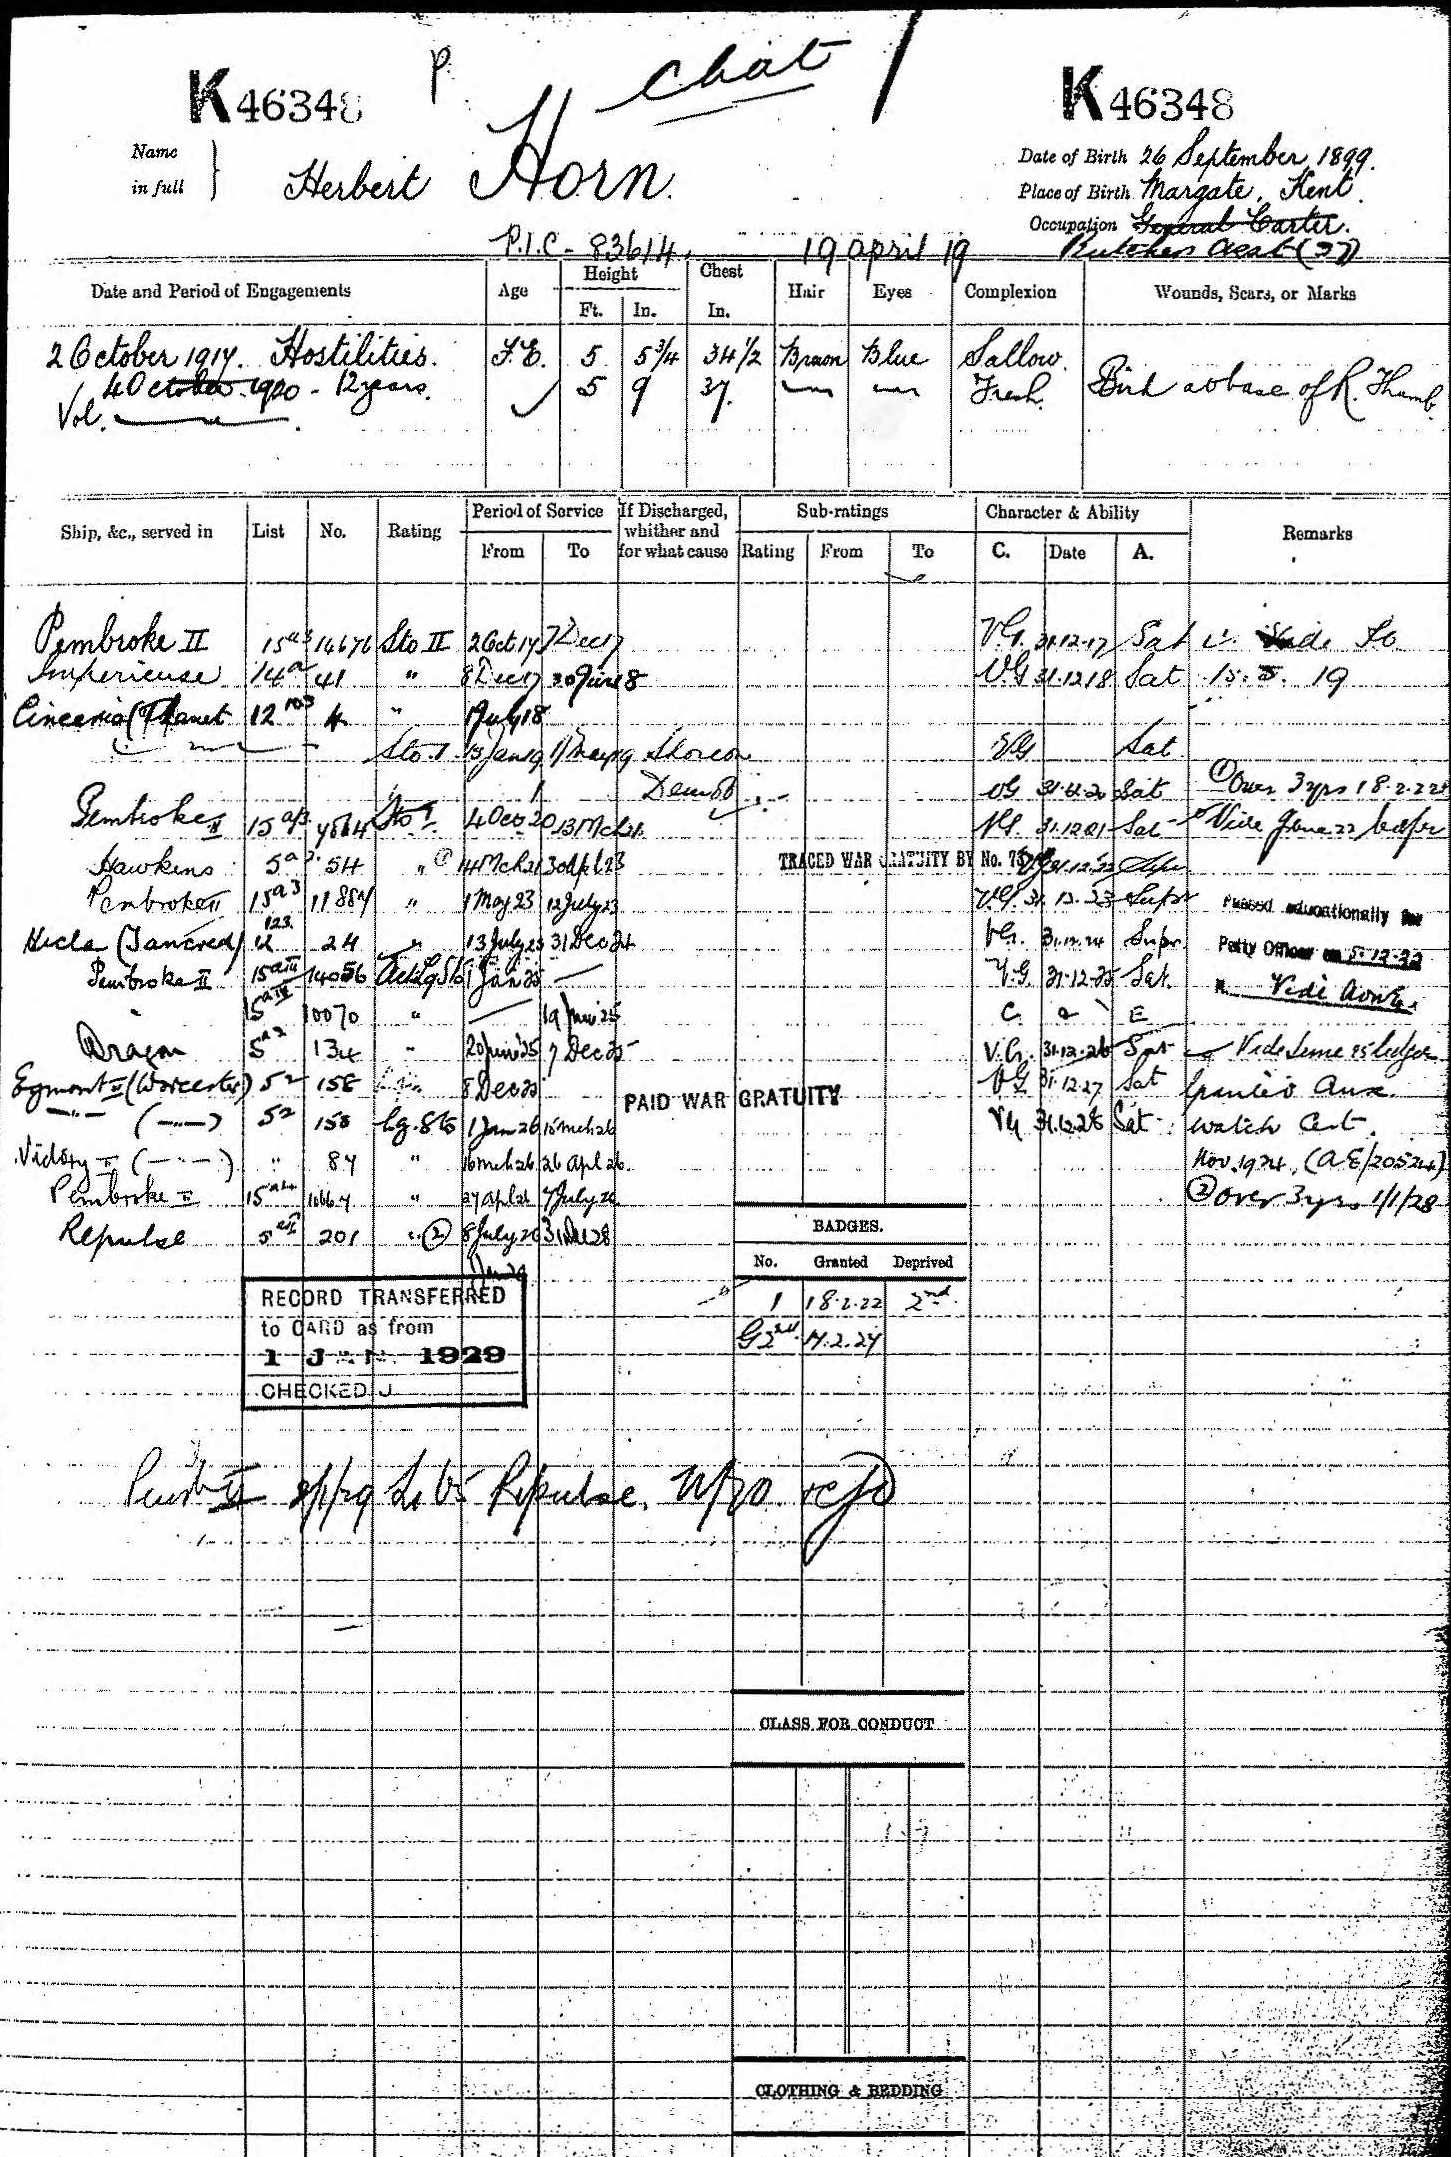 P. Chat
K 46348 K 46348
Name in full } Herbert Horn.
Date of Birth 26 September, 1899.
Place of Birth Margate, Kent.
Occupation General Carter.
P.I.C - 83614. 19 April 19 Butchers (37)
Date and Period of Engagements Age Height Ft. In. Chest In. Hair Eyes Complexion Wounds, Scars, or Marks
2 October 1917. Hostilities. 5 5 3/4 34 1/2 Brown Blue Sallow.
4 October 1920 - 12 years. 5 9 37. Fresh. base of R. Thumb.
Vol.
Ship, &c., served in List No. Rating Period of Service From To If Discharged, whither and for what cause Sub-ratings Rating From To Character & Ability C. Date A. Remarks
Pembroke II 15a3 14676 Sto II 2 Oct 17 7 Dec 17 V.G. 31.12.17 Sat
Imperieuse 14a 41 " 8 Dec 17 30 June 18 V.G 31.12.18 Sat 15. 5. 19
12 103 4 " 1 July 18
Sto. 1 13 Jan 19 Shore on VG Sat
Demob VG Sat ① Over 3 yrs 18.2.22
Pembroke II 15a3 Sto 1 4 Oct 20 13 Mch 21 VG. 31.12.21 Sat Vide June 22 ledger
Hawkins 5a2 54 " ① 14 Mch 21 30 Apl 23 TRACED WAR GRATUITY BY No.
Pembroke II 15a3 11884 " 1 May 23 12 July 23 V.G. 31.12.23 Supr Passed educationally for
Hecla (Tancred) 12 123 24 " 13 July 23 31 Dec 24 V.G. 31.12.24 Supr Petty Officer on 5.12.22
Pembroke II 15aIII 14056 Act Lg Sto 1 Jan 25 V.G. 31.12.25 Sat.
15aIV 10070 " 19 June 25 C. a E
Dragon 5a2 134 " 20 June 25 7 Dec 25 V.G. 31.12.26 Sat Vide June 25 ledger
Egmont II (Worcester) 52 158 8 Dec 25 VG 31.12.27 Sat Granted Aux.
PAID WAR GRATUITY
" ( " ) 52 158 Lg. Sto 1 Jan 26 15 Mch 26 VG 31.12.28 Sat Watch Cert.
Victory II ( " ) " 84 " 16 Mch 26 26 Apl 26 Nov. 1924. (AE/20524)
Pembroke II " 27 Apl 26 7 July 26 ② Over 3 yrs 1/1/28
Repulse 5 201 " ② 8 July 26 31 Dec 28
BADGES.
No. Granted Deprived
1 18.2.22 2nd
G 2nd
RECORD TRANSFERRED
to CARD as from
1 JAN. 1929
CHECKED J
Repulse.
CLASS FOR CONDUCT
CLOTHING & BEDDING